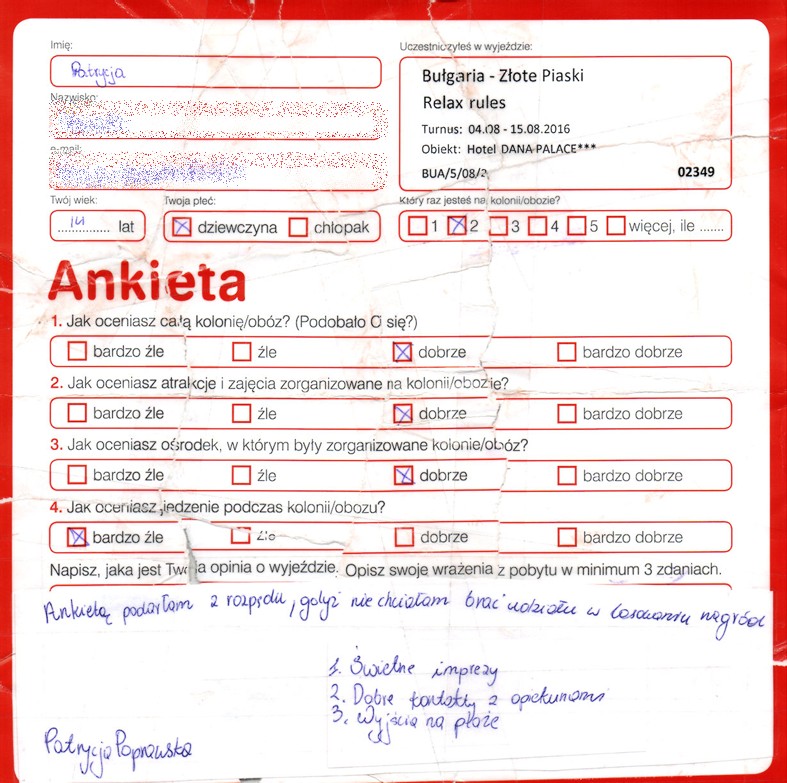 Imię:
Patrycja
Uczestniczyłeś w wyjeździe:
Bułgaria - Złote Piaski
Relax rules
Turnus: 04.08 - 15.08.2016
Obiekt: Hotel DANA PALACE***
BUA/5/08/2
02349
Nazwisko:
e-mail:
Twój wiek:
14 lat
Twoja płeć:
dziewczyna
chłopak
Który raz jesteś na kolonii/obozie?
1 2 3 4 5 więcej, ile .......
Ankieta
1. Jak oceniasz całą kolonię/obóz? (Podobało Ci się?)
bardzo źle źle dobrze bardzo dobrze
2. Jak oceniasz atrakcje i zajęcia zorganizowane na kolonii/obozie?
bardzo źle źle dobrze bardzo dobrze
3. Jak oceniasz ośrodek, w którym były zorganizowane kolonie/obóz?
bardzo źle źle dobrze bardzo dobrze
4. Jak oceniasz jedzenie podczas kolonii/obozu?
bardzo źle źle dobrze bardzo dobrze
Napisz, jaka jest Twoja opinia o wyjeździe. Opisz swoje wrażenia z pobytu w minimum 3 zdaniach.
Ankietę podarłam z rozpędu, gdyż nie chciałam brać udziału w losowaniu nagród
1. Świetne imprezy
2. Dobre kontakty z opiekunami
3. Wyjścia na plaże
Patrycja Poprawska